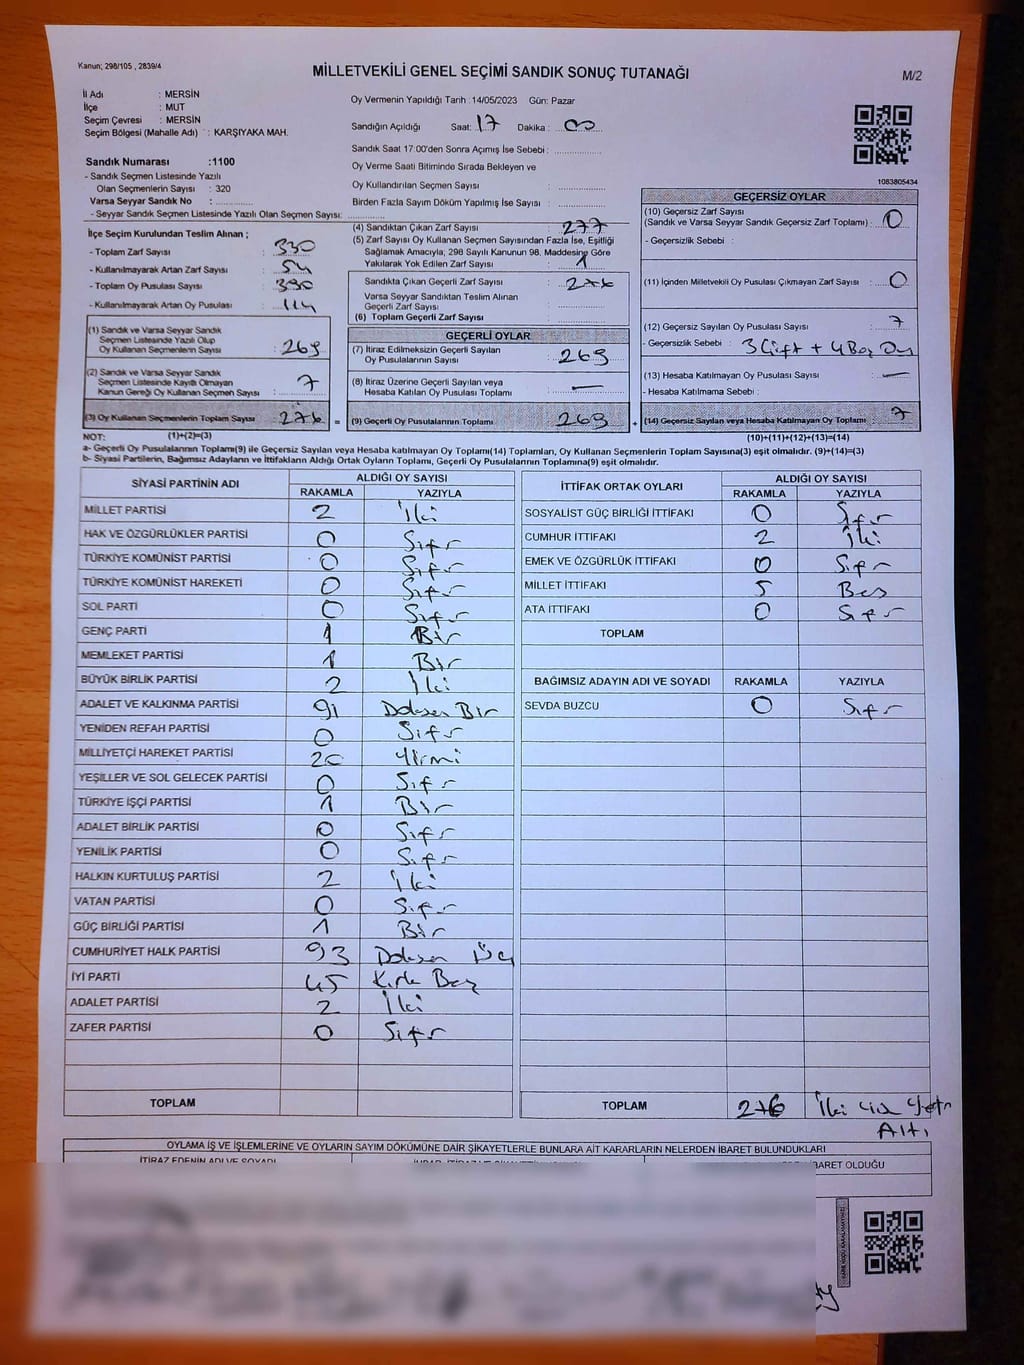 Kanun; 298/105 , 2839/4
MİLLETVEKİLİ GENEL SEÇİMİ SANDIK SONUÇ TUTANAĞI
M/2
İl Adı : MERSİN
İlçe : MUT
Seçim Çevresi : MERSİN
Seçim Bölgesi (Mahalle Adı) : KARŞIYAKA MAH.
Sandık Numarası :1100
- Sandık Seçmen Listesinde Yazılı
Olan Seçmenlerin Sayısı : 320
Varsa Seyyar Sandık No :
- Seyyar Sandık Seçmen Listesinde Yazılı Olan Seçmen Sayısı:
Oy Vermenin Yapıldığı Tarih :14/05/2023 Gün: Pazar
Sandığın Açıldığı Saat: 17 Dakika : 00
Sandık Saat 17:00'den Sonra Açımış İse Sebebi :
Oy Verme Saati Bitiminde Sırada Bekleyen ve
Oy Kullandırılan Seçmen Sayısı :
Birden Fazla Sayım Döküm Yapılmış İse Sayısı :
1083805434
İlçe Seçim Kurulundan Teslim Alınan ;
- Toplam Zarf Sayısı : 330
- Kullanılmayarak Artan Zarf Sayısı : 54
- Toplam Oy Pusulası Sayısı : 390
- Kullanılmayarak Artan Oy Pusulası : 114
(1) Sandık ve Varsa Seyyar Sandık
Seçmen Listesinde Yazılı Olup
Oy Kullanan Seçmenlerin Sayısı : 269
(2) Sandık ve Varsa Seyyar Sandık
Seçmen Listesinde Kayıtlı Olmayan
Kanun Gereği Oy Kullanan Seçmen Sayısı : 7
(3) Oy Kullanan Seçmenlerin Toplam Sayısı : 276
(4) Sandıktan Çıkan Zarf Sayısı : 277
(5) Zarf Sayısı Oy Kullanan Seçmen Sayısından Fazla İse, Eşitliği
Sağlamak Amacıyla, 298 Sayılı Kanunun 98. Maddesine Göre
Yakılarak Yok Edilen Zarf Sayısı : 1
Sandıkta Çıkan Geçerli Zarf Sayısı : 276
Varsa Seyyar Sandıktan Teslim Alınan
Geçerli Zarf Sayısı :
(6) Toplam Geçerli Zarf Sayısı :
GEÇERLİ OYLAR
(7) İtiraz Edilmeksizin Geçerli Sayılan
Oy Pusulalarının Sayısı : 269
(8) İtiraz Üzerine Geçerli Sayılan veya
Hesaba Katılan Oy Pusulası Toplamı : —
= (9) Geçerli Oy Pusulalarının Toplamı : 269
GEÇERSİZ OYLAR
(10) Geçersiz Zarf Sayısı
(Sandık ve Varsa Seyyar Sandık Geçersiz Zarf Toplamı) : 0
- Geçersizlik Sebebi :
(11) İçinden Milletvekili Oy Pusulası Çıkmayan Zarf Sayısı : 0
(12) Geçersiz Sayılan Oy Pusulası Sayısı : 7
- Geçersizlik Sebebi : 3 Çift + 4 Boş Oy
(13) Hesaba Katılmayan Oy Pusulası Sayısı : —
- Hesaba Katılmama Sebebi :
+ (14) Geçersiz Sayılan veya Hesaba Katılmayan Oy Toplamı : 7
NOT: (1)+(2)=(3)
(10)+(11)+(12)+(13)=(14)
a- Geçerli Oy Pusulalarının Toplamı(9) ile Geçersiz Sayılan veya Hesaba katılmayan Oy Toplamı(14) Toplamları, Oy Kullanan Seçmenlerin Toplam Sayısına(3) eşit olmalıdır. (9)+(14)=(3)
b- Siyasi Partilerin, Bağımsız Adayların ve İttifakların Aldığı Ortak Oyların Toplamı, Geçerli Oy Pusulalarının Toplamına(9) eşit olmalıdır.
SİYASİ PARTİNİN ADI ALDIĞI OY SAYISI
RAKAMLA YAZIYLA
MİLLET PARTİSİ 2 İki
HAK VE ÖZGÜRLÜKLER PARTİSİ 0 Sıfır
TÜRKİYE KOMÜNİST PARTİSİ 0 Sıfır
TÜRKİYE KOMÜNİST HAREKETİ 0 Sıfır
SOL PARTİ 0 Sıfır
GENÇ PARTİ 1 Bir
MEMLEKET PARTİSİ 1 Bir
BÜYÜK BİRLİK PARTİSİ 2 İki
ADALET VE KALKINMA PARTİSİ 91 Doksan Bir
YENİDEN REFAH PARTİSİ 0 Sıfır
MİLLİYETÇİ HAREKET PARTİSİ 20 Yirmi
YEŞİLLER VE SOL GELECEK PARTİSİ 0 Sıfır
TÜRKİYE İŞÇİ PARTİSİ 1 Bir
ADALET BİRLİK PARTİSİ 0 Sıfır
YENİLİK PARTİSİ 0 Sıfır
HALKIN KURTULUŞ PARTİSİ 2 İki
VATAN PARTİSİ 0 Sıfır
GÜÇ BİRLİĞİ PARTİSİ 1 Bir
CUMHURİYET HALK PARTİSİ 93 Doksan Üç
İYİ PARTİ 45 Kırk Beş
ADALET PARTİSİ 2 İki
ZAFER PARTİSİ 0 Sıfır
TOPLAM
İTTİFAK ORTAK OYLARI ALDIĞI OY SAYISI
RAKAMLA YAZIYLA
SOSYALİST GÜÇ BİRLİĞİ İTTİFAKI 0 Sıfır
CUMHUR İTTİFAKI 2 İki
EMEK VE ÖZGÜRLÜK İTTİFAKI 0 Sıfır
MİLLET İTTİFAKI 5 Beş
ATA İTTİFAKI 0 Sıfır
TOPLAM
BAĞIMSIZ ADAYIN ADI VE SOYADI RAKAMLA YAZIYLA
SEVDA BUZCU 0 Sıfır
TOPLAM 276 İki Yüz Yetm
Altı
OYLAMA İŞ VE İŞLEMLERİNE VE OYLARIN SAYIM DÖKÜMÜNE DAİR ŞİKAYETLERLE BUNLARA AİT KARARLARIN NELERDEN İBARET BULUNDUKLARI
İTİRAZ EDENİN ADI VE SOYADI
İBARET OLDUĞU